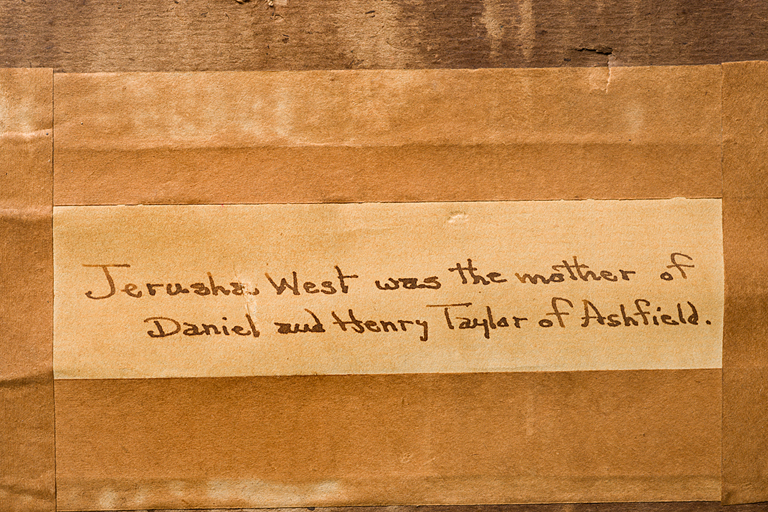 Jerusha West was the mother of
Daniel and Henry Taylor of Ashfield.